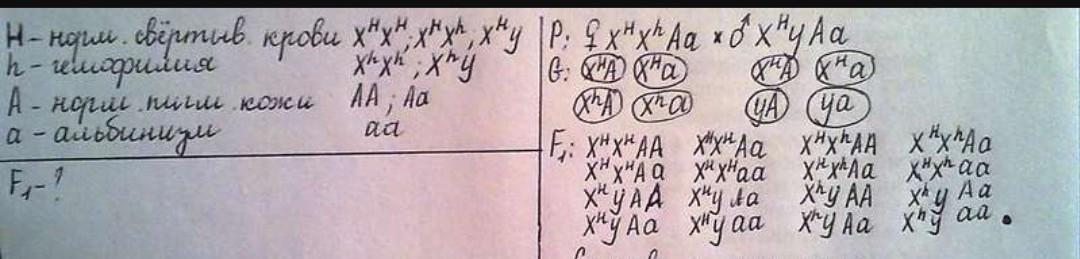 H - норм. свёртыв. крови X^H X^H; X^H X^h; X^H y
h - гемофилия X^h X^h; X^h y
A - норм. пигм. кожи AA; Aa
a - альбинизм aa
F₁ - ?
P: ♀ X^H X^h Aa × ♂ X^H y Aa
G: X^H A X^H a X^H A X^H a
X^h A X^h a yA ya
F₁: X^H X^H AA X^H X^H Aa X^H X^h AA X^H X^h Aa
X^H X^H Aa X^H X^H aa X^H X^h Aa X^H X^h aa
X^H y AA X^H y Aa X^h y AA X^h y Aa
X^H y Aa X^H y aa X^h y Aa X^h y aa.